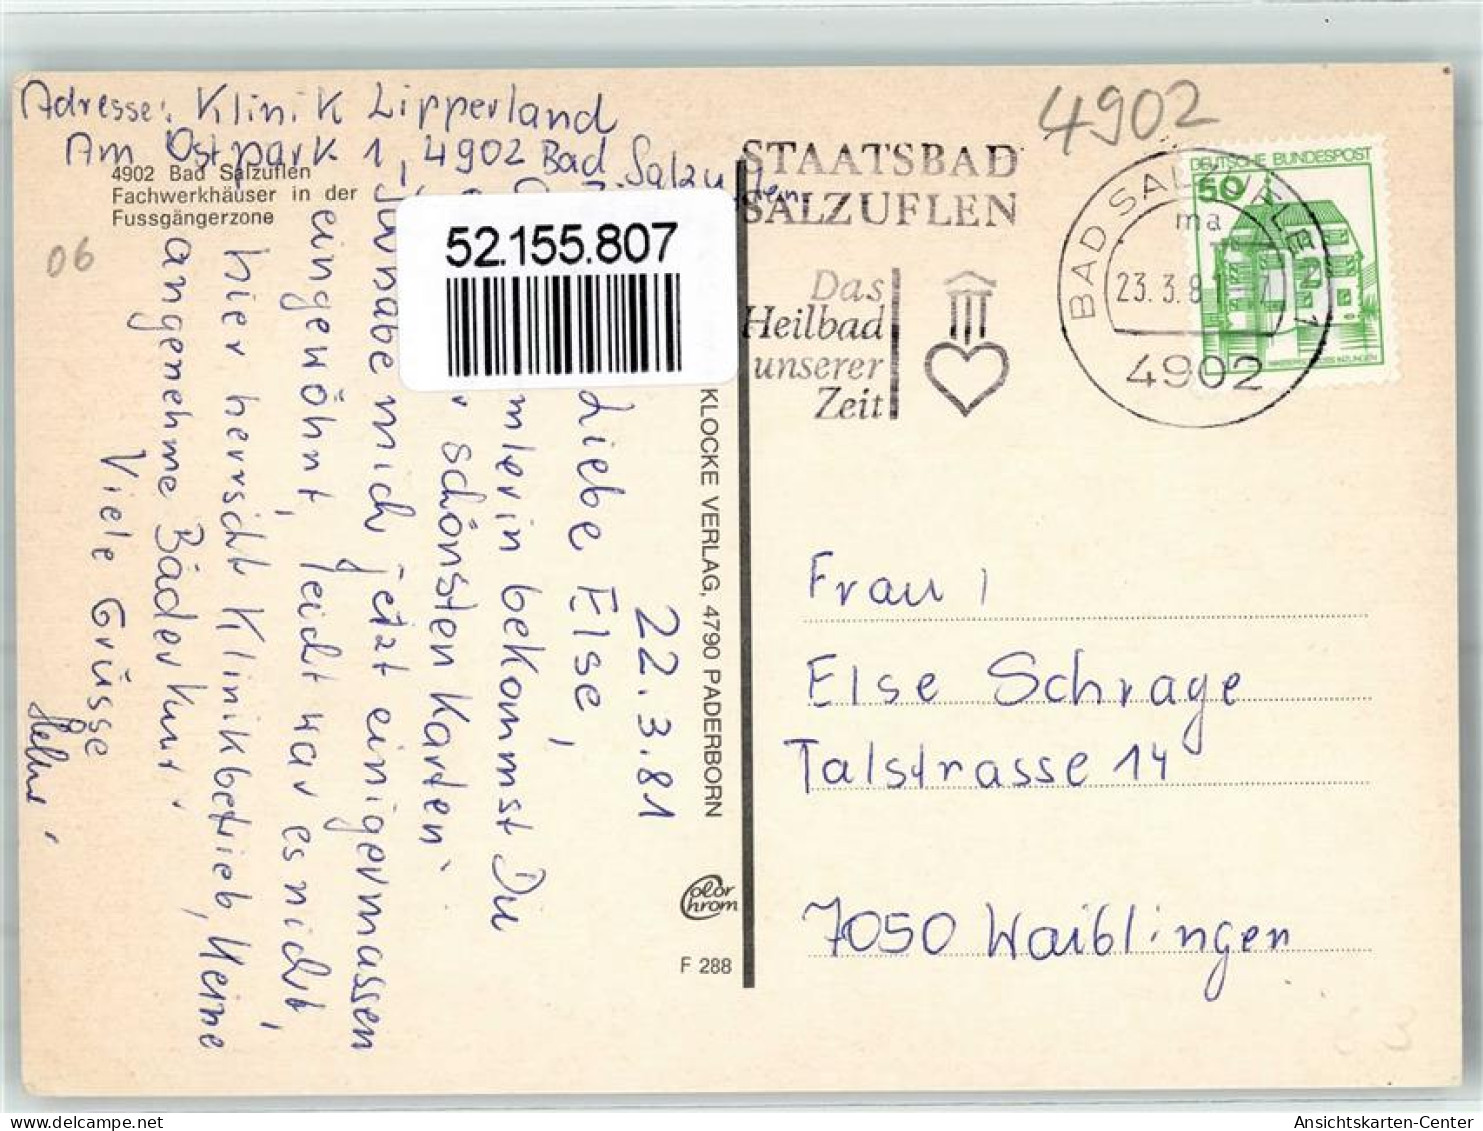 Adresse: Klinik Lipperland
Am Ostpark 1, 4902 Bad Salzuflen
4902 Bad Salzuflen
Fachwerkhäuser in der
Fussgängerzone
06
52.155.807
22.3.81
Liebe Else,
mlerin bekommst Du
r schönsten Karten
habe mich jetzt einigermassen
eingewöhnt, leicht war es nicht,
hier herrscht Klinikbetrieb, keine
angenehme Bäderkur.
Viele Grüsse
KLOCKE VERLAG, 4790 PADERBORN
Color
Chrom
F 288
4902
STAATSBAD
SALZUFLEN
Das
Heilbad
unserer
Zeit
BAD SALZUFLEN 1
ma
23.3.8
4902
DEUTSCHE BUNDESPOST
50
Frau
Else Schrage
Talstrasse 14
7050 Waiblingen
Ansichtskarten-Center